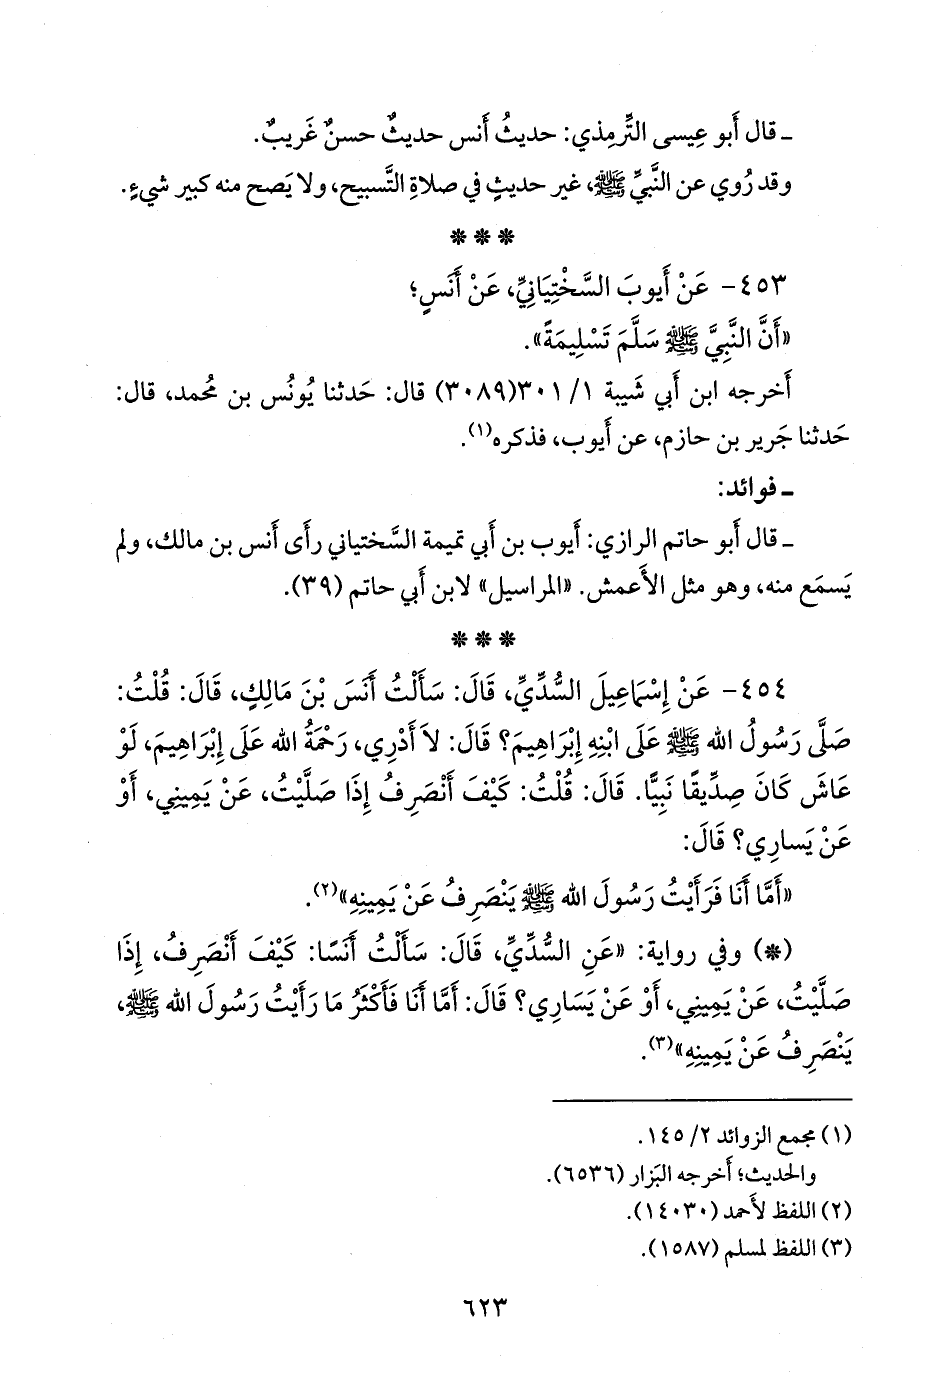 ـ قال أَبو عِيسى التِّرمِذي: حديثُ أَنس حديثٌ حسنٌ غَريبٌ.
وقد رُوي عن النَّبيِّ ﷺ، غير حديثٍ في صلاةِ التَّسبيح، ولا يَصح منه كبير شيءٍ.
* * *
٤٥٣- عَنْ أَيوبَ السَّخْتِيَانِيِّ، عَنْ أَنَسٍ؛
«أَنَّ النَّبِيَّ ﷺ سَلَّمَ تَسْلِيمَةً».
أَخرجه ابن أَبي شَيبة ١/ ٣٠١(٣٠٨٩) قال: حَدثنا يُونُس بن مُحمد، قال:
حَدثنا جَرير بن حازم، عن أَيوب، فذكره(١).
ـ فوائد:
ـ قال أَبو حاتم الرازي: أَيوب بن أَبي تميمة السَّختياني رأَى أَنس بن مالك، ولم
يَسمَع منه، وهو مثل الأَعمش. «المراسيل» لابن أَبي حاتم (٣٩).
* * *
٤٥٤- عَنْ إِسْمَاعِيلَ السُّدِّيِّ، قَالَ: سَأَلْتُ أَنَسَ بْنَ مَالِكٍ، قَالَ: قُلْتُ:
صَلَّى رَسُولُ الله ﷺ عَلَى ابْنِهِ إِبْرَاهِيمَ؟ قَالَ: لاَ أَدْرِي، رَحْمَةُ الله عَلَى إِبْرَاهِيمَ، لَوْ
عَاشَ كَانَ صِدِّيقًا نَبِيًّا. قَالَ: قُلْتُ: كَيْفَ أَنْصَرِفُ إِذَا صَلَّيْتُ، عَنْ يَمِينِي، أَوْ
عَنْ يَسارِي؟ قَالَ:
«أَمَّا أَنَا فَرَأَيْتُ رَسُولَ الله ﷺ يَنْصَرِفُ عَنْ يَمِينِهِ»(٢).
(*) وفي رواية: «عَنِ السُّدِّيِّ، قَالَ: سَأَلْتُ أَنَسًا: كَيْفَ أَنْصَرِفُ، إِذَا
صَلَّيْتُ، عَنْ يَمِينِي، أَوْ عَنْ يَسَارِي؟ قَالَ: أَمَّا أَنَا فَأَكْثَرُ مَا رَأَيْتُ رَسُولَ الله ﷺ،
يَنْصَرِفُ عَنْ يَمِينِهِ»(٣).
(١) مجمع الزوائد ٢/ ١٤٥.
والحديث؛ أَخرجه البَزار (٦٥٣٦).
(٢) اللفظ لأَحمد (١٤٠٣٠).
(٣) اللفظ لمسلم (١٥٨٧).
٦٢٣